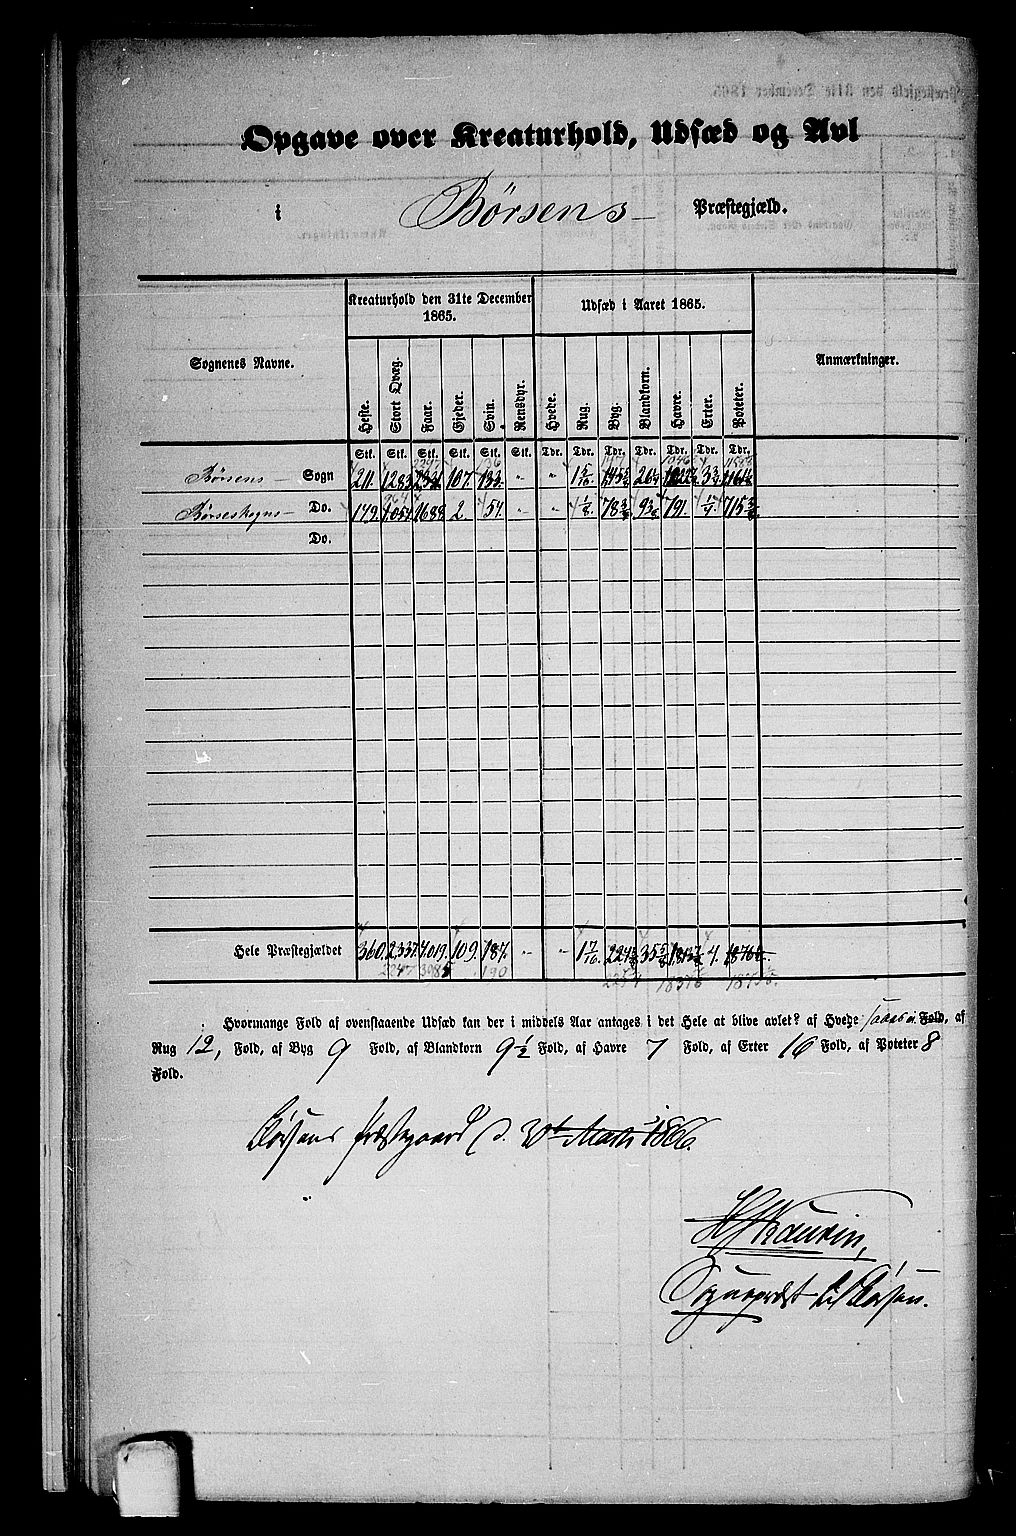 Opgave over Kreaturhold, Udsæd og Avl
i Børsens Præstegjæld.
Sognenes Navne.
Kreaturhold den 31te December 1865.
Udsæd i Aaret 1865.
Anmærkninger.
Heste. Stort Qvæg. Faar. Gjeder. Svin. Rensdyr. Hvede. Rug. Byg. Blandkorn. Havre. Erter. Poteter.
Stk. Stk. Stk. Stk. Stk. Stk. Tdr. Tdr. Tdr. Tdr. Tdr. Tdr. Tdr.
Børsens Sogn 211. 1283 107. 133. " "
Børseskogns Do. 149. 1054 1688 2. 54. " " 1/8. 78 3/8 9 3/8 791. 1/4. 715 3/8
Do.
Hele Præstegjældet 360. 2337. 4019. 109. 187. " " 1 7/16. 35 5/8 4.
2247 3085 190
Hvormange Fold af ovenstaaende Udsæd kan der i middels Aar antages i det Hele at blive avlet? af Hvede Fold, af
Rug 12, Fold, af Byg 9 Fold, af Blandkorn 9 1/2 Fold, af Havre 7 Fold, af Erter 16 Fold, af Poteter 8
Fold.
Børsens Præstegaard d. Marts 1866.
Sognepræst til Børsen.